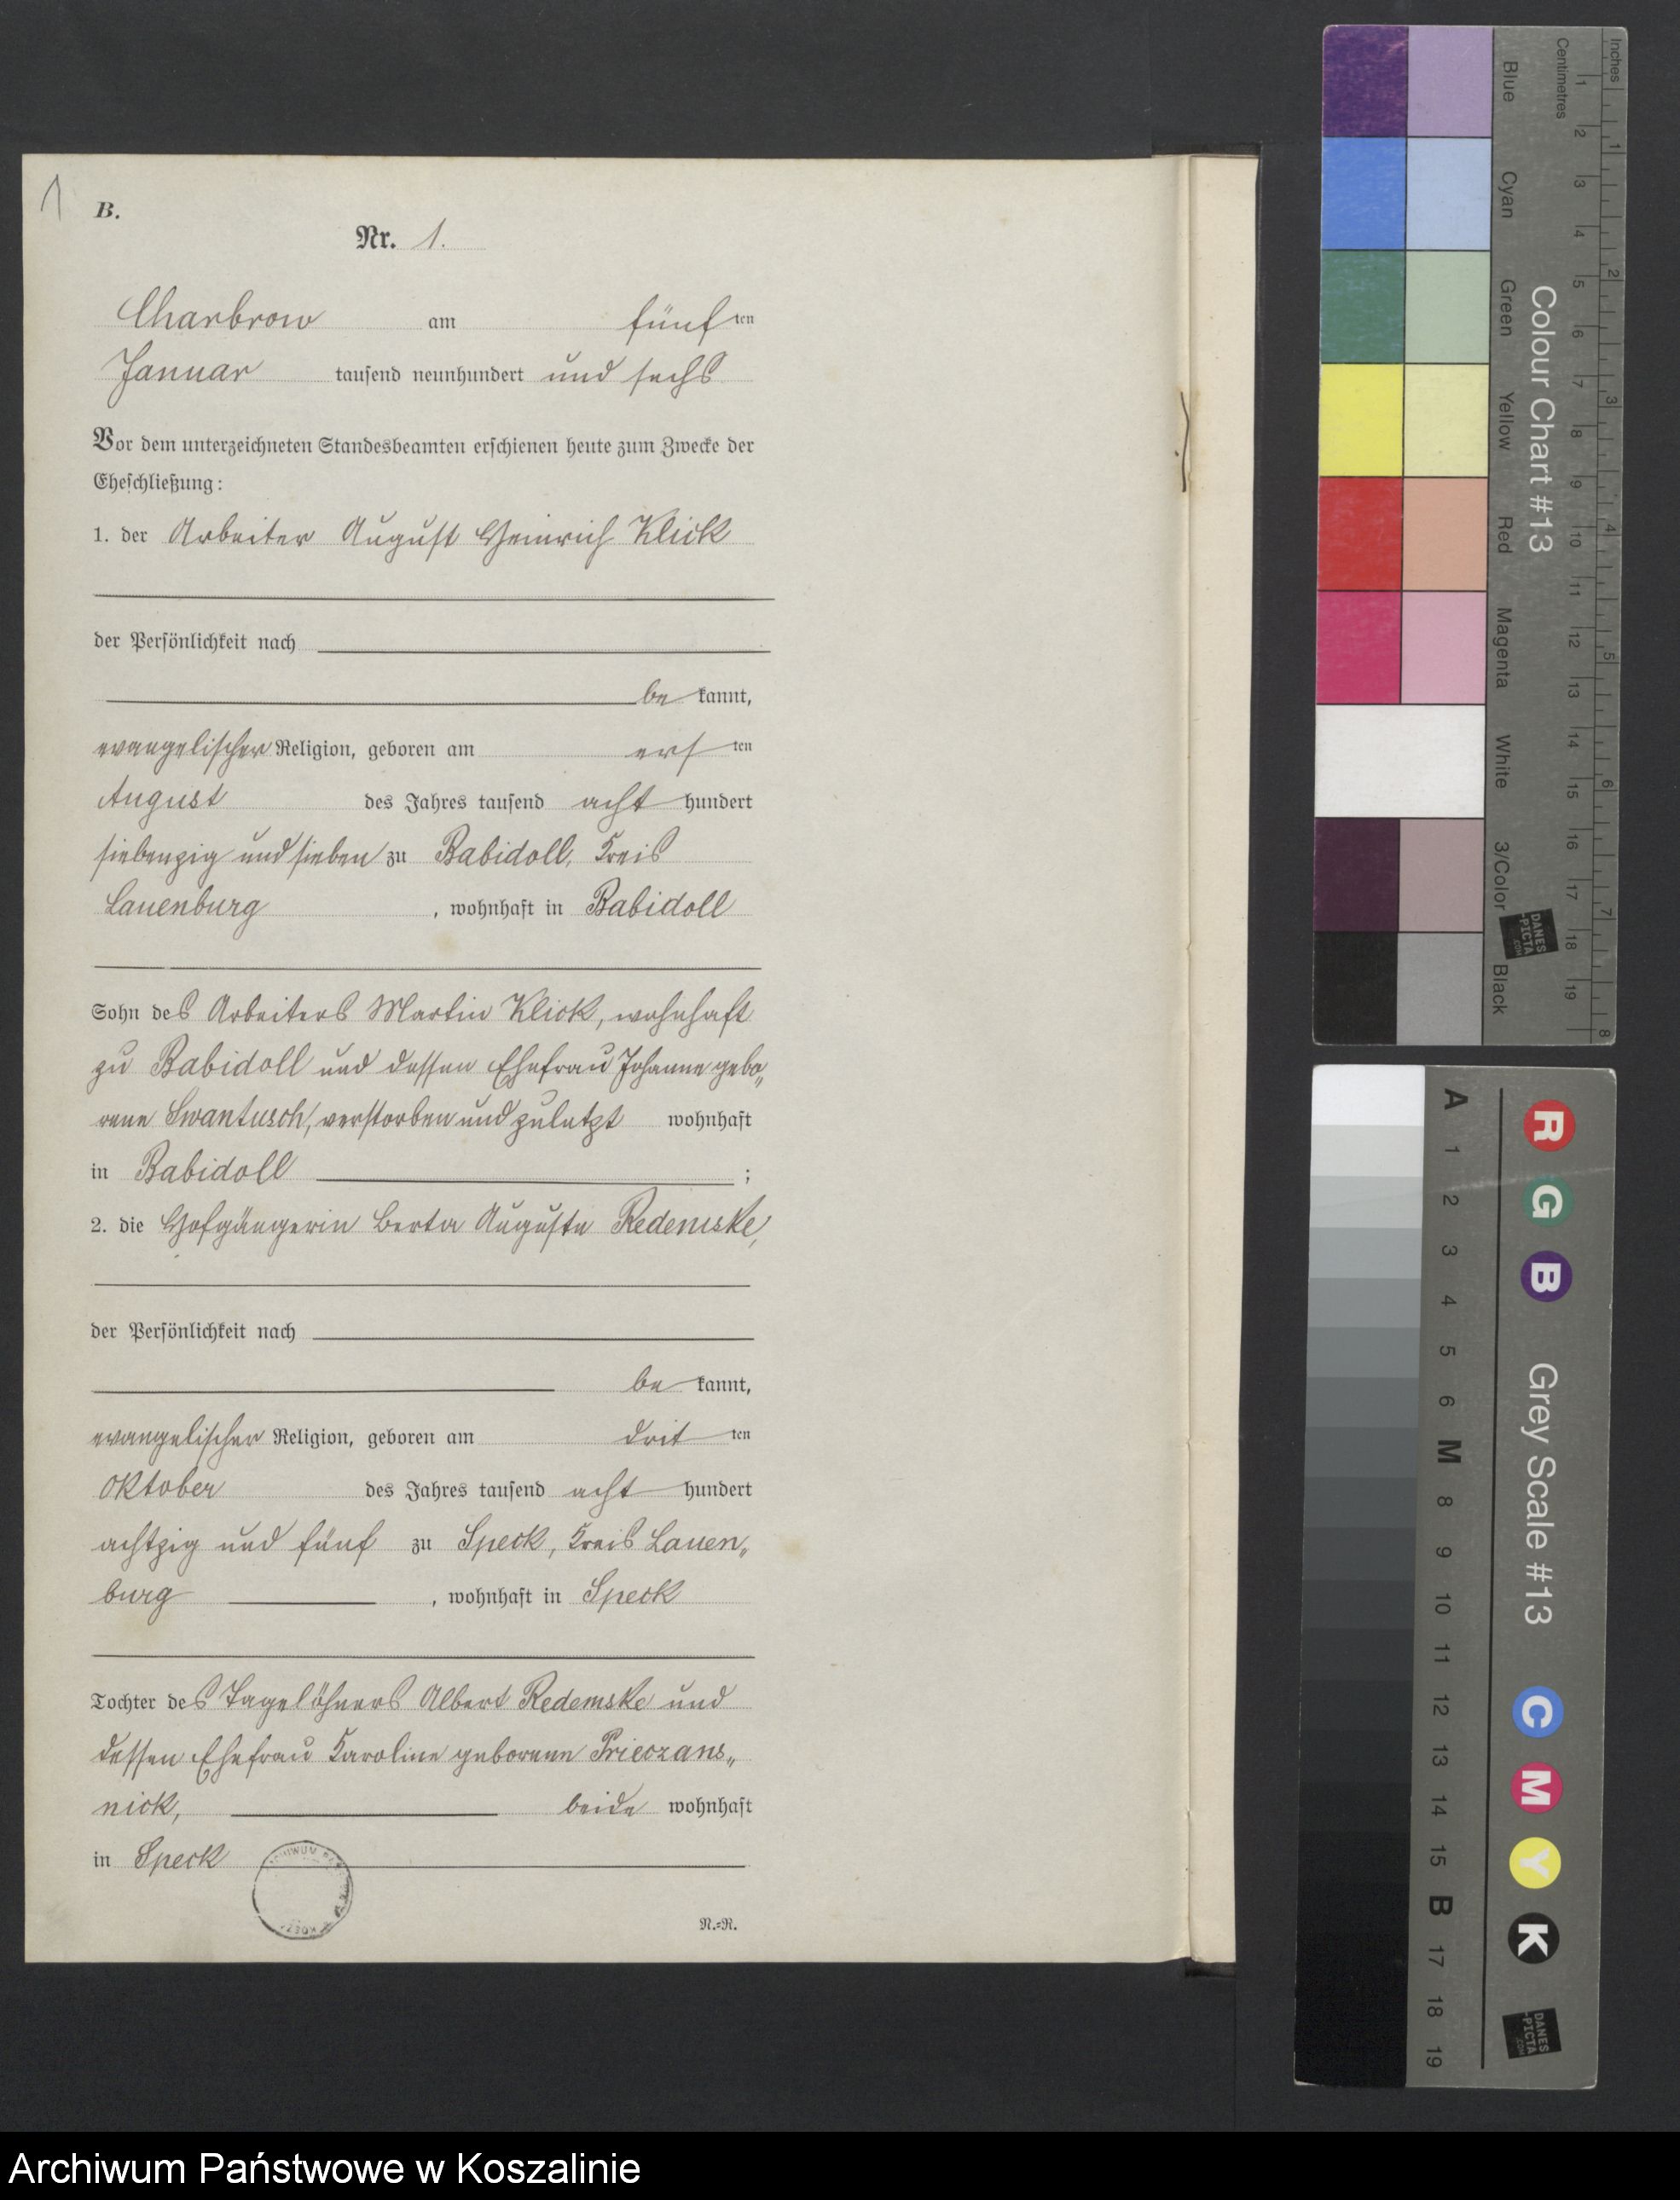 1
B.
Nr. 1.
Charbrow am fünften
Januar tausend neunhundert und sechs
Vor dem unterzeichneten Standesbeamten erschienen heute zum Zwecke der
Eheschließung:
1. der Arbeiter August Heinrich Klick
der Persönlichkeit nach
be kannt,
evangelischer Religion, geboren am ersten
August des Jahres tausend acht hundert
siebenzig und sieben zu Babidoll, Kreis
Lauenburg, wohnhaft in Babidoll
Sohn des Arbeiters Martin Klick, wohnhaft
zu Babidoll und dessen Ehefrau Johanne gebo„
rene Swantusch, verstorben und zuletzt wohnhaft
in Babidoll ;
2. die Hofgängerin Berta Auguste Redemske,
der Persönlichkeit nach
be kannt,
evangelischer Religion, geboren am dritten
Oktober des Jahres tausend acht hundert
achtzig und fünf zu Speck, Kreis Lauen„
burg , wohnhaft in Speck
Tochter des Tagelöhners Albert Redemske und
dessen Ehefrau Karoline geborene Prieczans„
nick, beide wohnhaft
in Speck
N.=N.
Inches
Centimetres
1 2 3 4 5 6 7 8 9 10 11 12 13 14 15 16 17 18 19
1 2 3 4 5 6 7 8
Colour Chart #13
Blue
Cyan
Green
Yellow
Red
Magenta
White
3/Color
Black
DANES
-PICTA
.COM
Grey Scale #13
A 1 2 3 4 5 6 M 8 9 10 11 12 13 14 15 B 17 18 19
R
G
B
C
M
Y
K
DANES
-PICTA
.COM
Archiwum Państwowe w Koszalinie